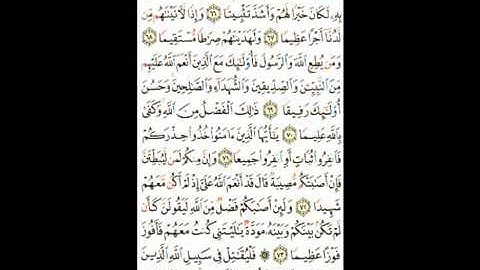 بِهِۦ لَكَانَ خَيْرًا لَّهُمْ وَأَشَدَّ تَثْبِيتًا ٦٦ وَإِذًا لَّأَتَيْنَٰهُم مِّن
لَّدُنَّآ أَجْرًا عَظِيمًا ٦٧ وَلَهَدَيْنَٰهُمْ صِرَٰطًا مُّسْتَقِيمًا ٦٨
وَمَن يُطِعِ ٱللَّهَ وَٱلرَّسُولَ فَأُو۟لَٰٓئِكَ مَعَ ٱلَّذِينَ أَنْعَمَ ٱللَّهُ عَلَيْهِم
مِّنَ ٱلنَّبِيِّـۧنَ وَٱلصِّدِّيقِينَ وَٱلشُّهَدَآءِ وَٱلصَّٰلِحِينَ وَحَسُنَ
أُو۟لَٰٓئِكَ رَفِيقًا ٦٩ ذَٰلِكَ ٱلْفَضْلُ مِنَ ٱللَّهِ وَكَفَىٰ
بِٱللَّهِ عَلِيمًا ٧٠ يَٰٓأَيُّهَا ٱلَّذِينَ ءَامَنُوا۟ خُذُوا۟ حِذْرَكُمْ
فَٱنفِرُوا۟ ثُبَاتٍ أَوِ ٱنفِرُوا۟ جَمِيعًا ٧١ وَإِنَّ مِنكُمْ لَمَن لَّيُبَطِّئَنَّ
فَإِنْ أَصَٰبَتْكُم مُّصِيبَةٌ قَالَ قَدْ أَنْعَمَ ٱللَّهُ عَلَىَّ إِذْ لَمْ أَكُن مَّعَهُمْ
شَهِيدًا ٧٢ وَلَئِنْ أَصَٰبَكُمْ فَضْلٌ مِّنَ ٱللَّهِ لَيَقُولَنَّ كَأَن
لَّمْ تَكُنۢ بَيْنَكُمْ وَبَيْنَهُۥ مَوَدَّةٌ يَٰلَيْتَنِى كُنتُ مَعَهُمْ فَأَفُوزَ
فَوْزًا عَظِيمًا ٧٣ ۞ فَلْيُقَٰتِلْ فِى سَبِيلِ ٱللَّهِ ٱلَّذِينَ